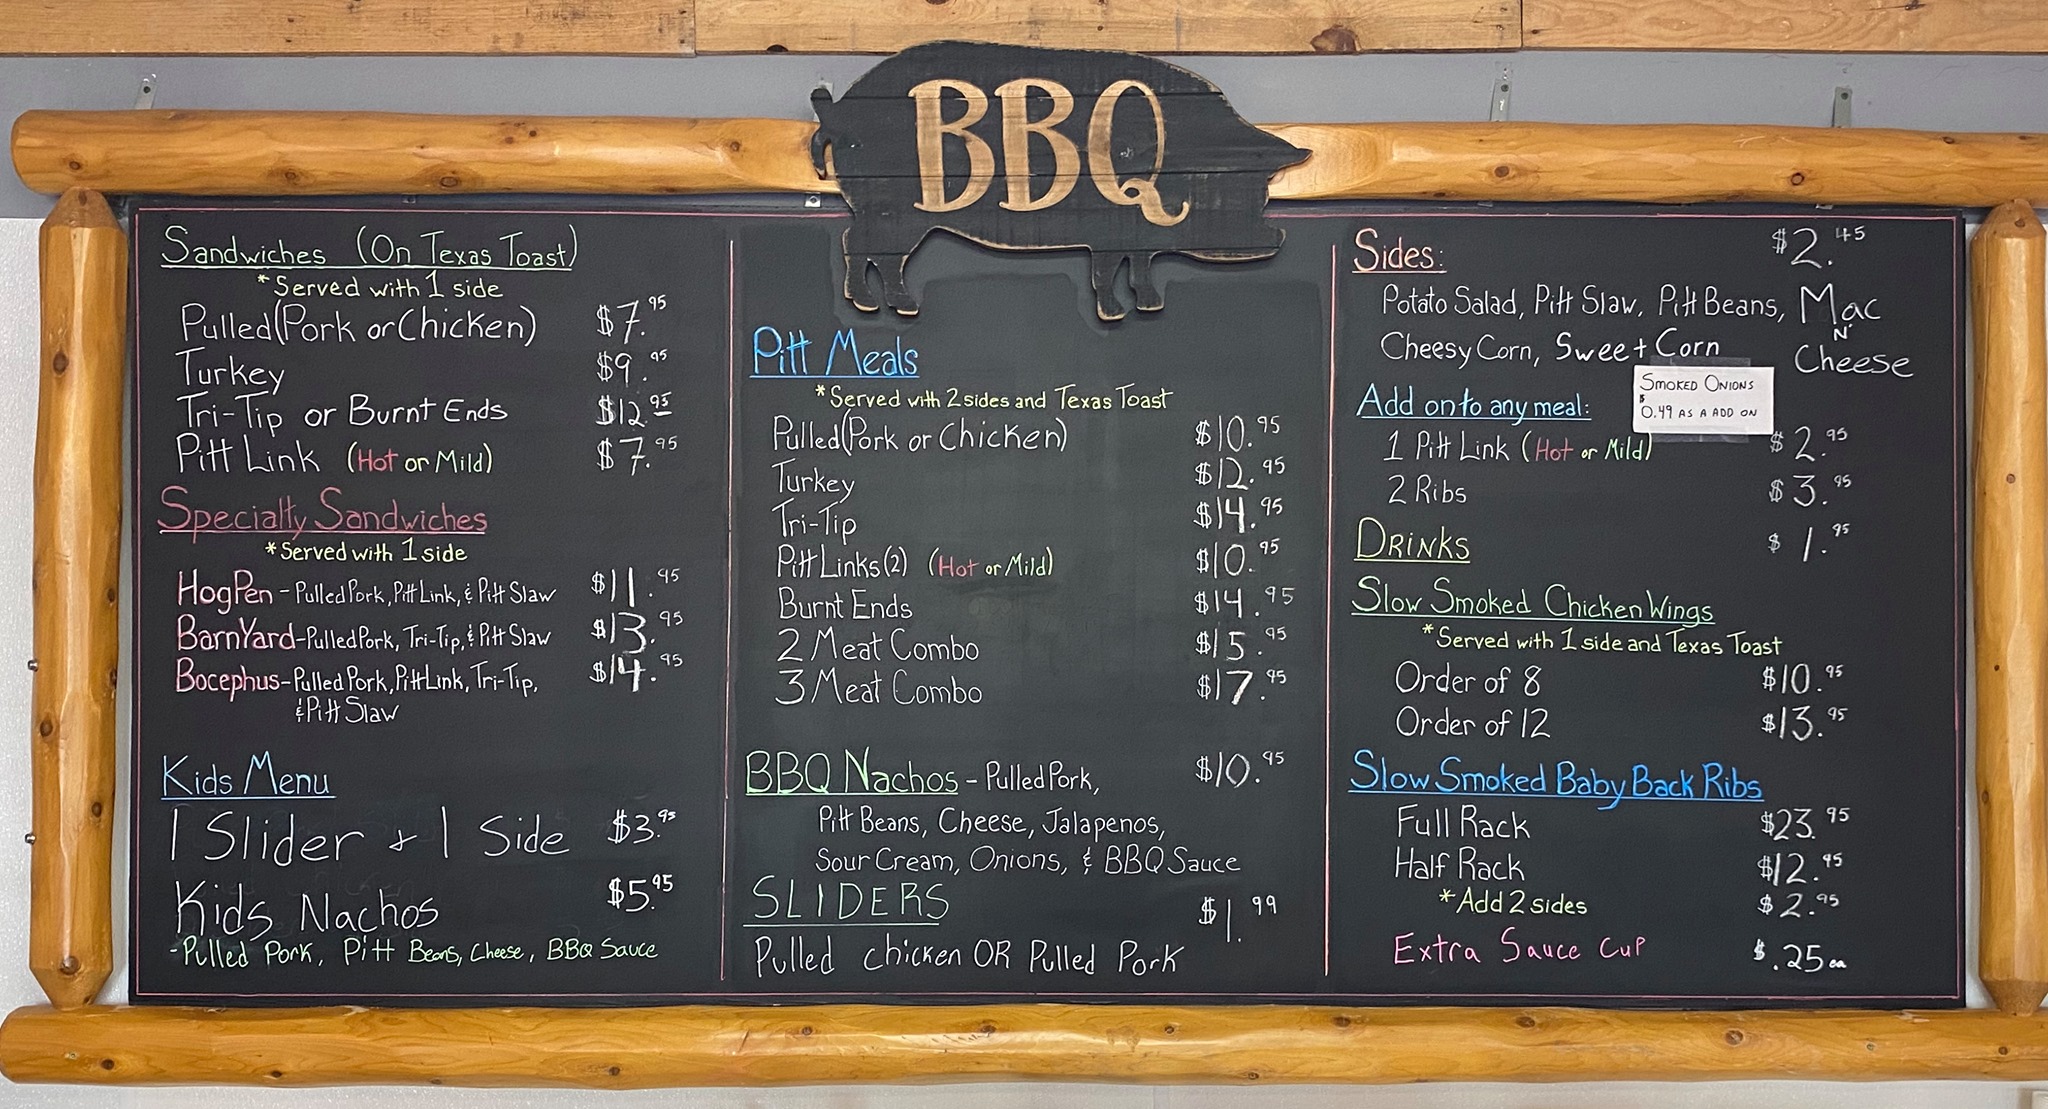 BBQ
Sandwiches (On Texas Toast)
*Served with 1 side
Pulled (Pork or Chicken) $7.95
Turkey $9.95
Tri-Tip or Burnt Ends $12.95
Pitt Link (Hot or Mild) $7.95
Specialty Sandwiches
*Served with 1 side
HogPen - Pulled Pork, Pitt Link, & Pitt Slaw $11.95
BarnYard - Pulled Pork, Tri-Tip, & Pitt Slaw $13.95
Bocephus - Pulled Pork, Pitt Link, Tri-Tip, $14.95
& Pitt Slaw
Kids Menu
1 Slider + 1 Side $3.95
Kids Nachos $5.95
- Pulled Pork, Pitt Beans, Cheese, BBQ Sauce
Pitt Meals
*Served with 2 sides and Texas Toast
Pulled (Pork or Chicken) $10.95
Turkey $12.95
Tri-Tip $14.95
Pitt Links (2) (Hot or Mild) $10.95
Burnt Ends $14.95
2 Meat Combo $15.95
3 Meat Combo $17.95
BBQ Nachos - Pulled Pork, $10.95
Pitt Beans, Cheese, Jalapenos,
Sour Cream, Onions, & BBQ Sauce
SLIDERS $1.99
Pulled chicken OR Pulled Pork
Sides: $2.45
Potato Salad, Pitt Slaw, Pitt Beans, Mac
N'
Cheesy Corn, Sweet Corn Cheese
SMOKED ONIONS
$0.49 AS A ADD ON
Add on to any meal:
1 Pitt Link (Hot or Mild) $2.95
2 Ribs $3.95
DRINKS $1.95
Slow Smoked Chicken Wings
*Served with 1 side and Texas Toast
Order of 8 $10.95
Order of 12 $13.95
Slow Smoked Baby Back Ribs
Full Rack $23.95
Half Rack $12.95
*Add 2 sides $2.95
Extra Sauce Cup $.25 ea